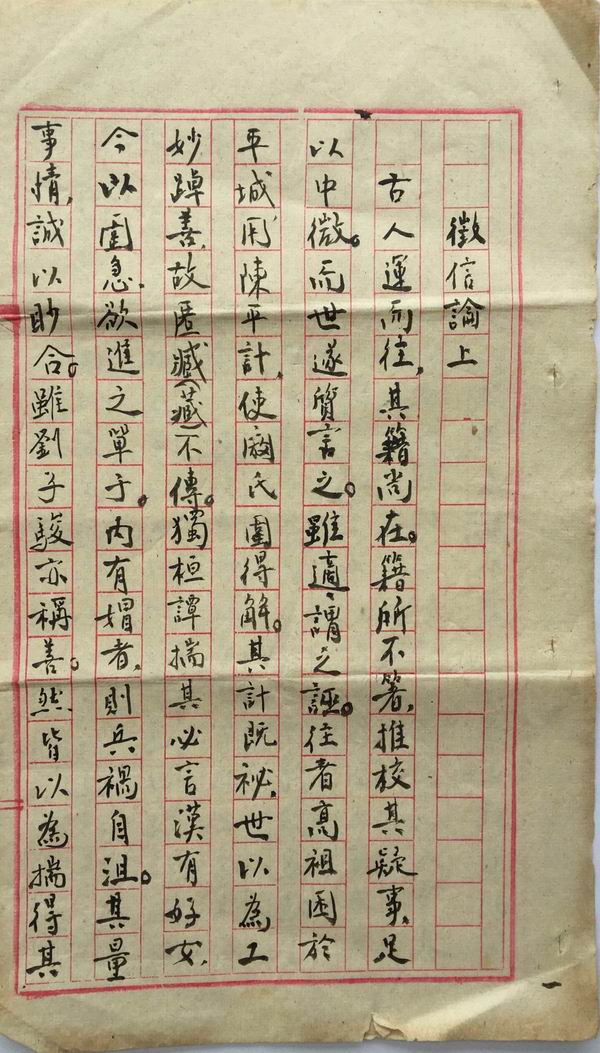 徵信論上
古人運而往，其籍尚在。籍所不箸，推校其疑事，足
以中微。而世遂質言之。雖適，謂之誣。往者高祖困於
平城，用陳平計，使閼氏圍得解。其計既祕，世以為工
妙踔善，故匿臧(藏)不傳。獨桓譚揣其必言漢有好女，
今以圍急，欲進之單于。內有媢者，則兵禍自沮。其量
事情，誠以眇合。雖劉子駿亦稱善。然皆以為揣得其
一